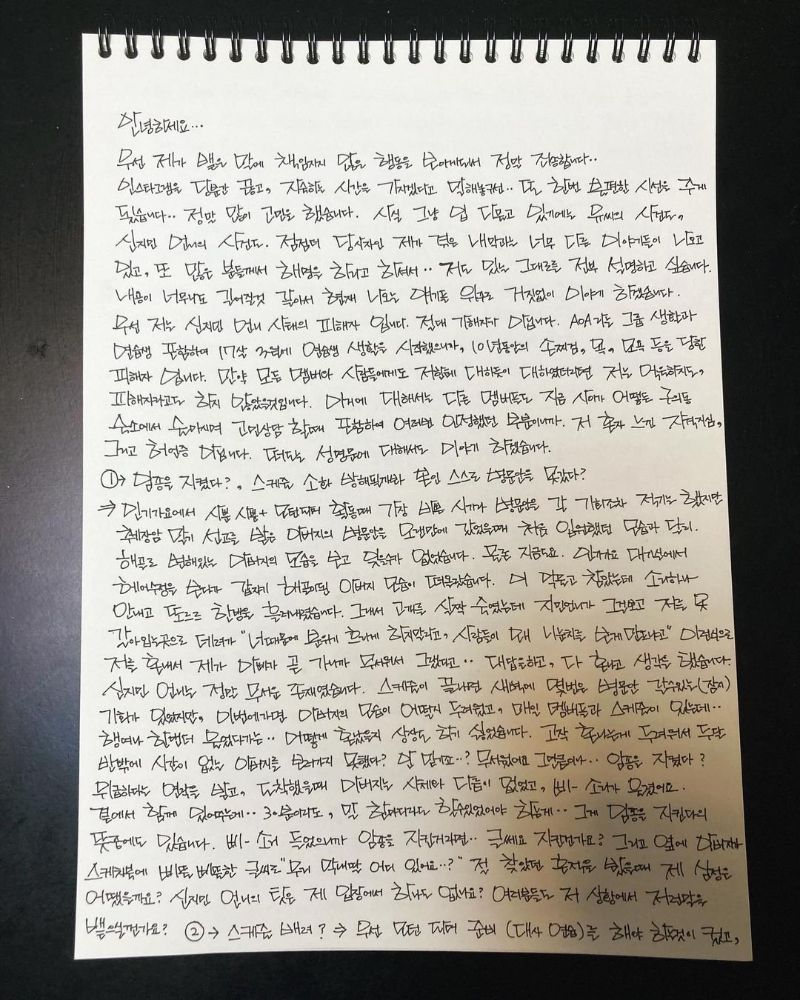 안녕하세요...
우선 제가 뱉은 말에 책임지지 않은 행동을 보이게되서 정말 죄송합니다..
인스타그램을 당분간 끊고, 자숙하는 시간을 가지겠다고 말해놓구선.. 또 한번 불편한 시선을 주게
됐습니다.. 정말 많이 고민도 했습니다. 사실 그냥 입 다물고 있기에는 유씨의 사건도,
신지민 언니의 사건도. 점점더 당사자인 제가 겪은 내막과는 너무 다른 이야기들이 나오고
있고, 또 많은 분들께서 해명을 하라고 하셔서.. 저도 있는 그대로를 전부 설명하고 싶습니다.
내용이 너무나도 길어질것 같아서 현재 나오는 얘기들 위주로 거짓없이 이야기 하겠습니다.
우선 저는 신지민 언니 사태의 피해자 입니다. 절대 가해자가 아닙니다. AOA라는 그룹 생활과
연습생 포함하여 17살 3월에 연습생 생활을 시작했으니까, 10년동안의 손찌검, 욕, 모욕 등을 당한
피해자 입니다. 만약 모든 멤버와 사람들에게도 저한테 대하듯이 대하였더라면 저는 억울하지도,
피해자라고도 하지 않았을것입니다. 여기에 대해서는 다른 멤버들도 지금 사이가 어떻든 우리들
숙소에서 고민상담 할때 포함하여 여러번 인정했던 부분이니까. 저 혼자 느낀 자격지심,
그리고 허언증 아닙니다. 떠도는 설명문에 대해서도 이야기 하겠습니다.
① → 임종을 지켰다?, 스케줄 소화 방해될까봐 본인 스스로 병문안을 못갔다?
⇒ 인기가요에서 사뿐사뿐+ 모던파머 활동때 가장 바쁜 시기라 병문안을 갈 기회조차 적기는 했지만
췌장암 말기 선고를 받은 아버지의 병문안을 오랜만에 갔었을때 처음 입원했던 모습과 달리.
해골로 변해있는 아버지의 모습을 보고 잊을수가 없었습니다. 물론 지금도요. 인기가요 대기실에서
헤어수정을 보다가 갑자기 해골이된 아버지 모습이 떠올랐습니다. 이 악물고 참았는데 소리하나
안내고 또르르 한방울 흘러내렸습니다. 그래서 고개를 살짝 숙였는데 지민언니가 그것보고 저를 옷
갈아입는곳으로 데려가 "너때문에 분위기 흐리게 하지말라고, 사람들이 너 눈치를 보는게 맞냐고" 이런식으로
저를 혼내서 제가 아빠가 곧 가니까 무서워서 그랬다고.. 대답을하고, 다 혼나고 생각을 했습니다.
신지민 언니는 정말 무서운 존재였습니다. 스케줄이 끝나면 새벽에 몇번은 병문안 갈수있는(잠깐)
기회가 있었지만, 이번에가면 아버지의 모습이 어떨지 두려웠고, 매일 멤버들과 스케줄이 있는데..
행여나 한번더 울었다가는.. 어떻게 혼났을지 상상도 하기 싫었습니다. 고작 혼나는게 두려워서 두달
반밖에 시간이 없는 아버지를 보러가지 못했다? 말 맞죠..? 무서웠어요 그언니가.. 임종을 지켰다?
위급하다는 연락을 받고, 도착했을때 아버지는 시체와 다름이 없었고, 삐- 소리가 울렸어요.
곁에서 함께 있어주는게.. 30분이라도, 말 한마디라도 할수있었어야 하는게.. 그게 임종을 지킨다의
뜻중에도 있습니다. 삐- 소리 들었으니까 임종을 지킨거라면.. 글쎄요 지킨건가요? 그리고 옆에 아버지가
스케치북에 삐뚤 삐뚤한 글씨로 "우리 막내딸 어디 있어요..?" 절 찾았던 흔적을 봤을때 제 심정은
어땠을까요? 신지민 언니의 탓은 제 입장에서 하나도 없나요? 여러분들도 저 상황에서 저런말을
뱉으실건가요? ② → 스케줄 배려? ⇒ 우선 모던 파머 준비 (대사 연습)을 해야 하는것이 컸고,